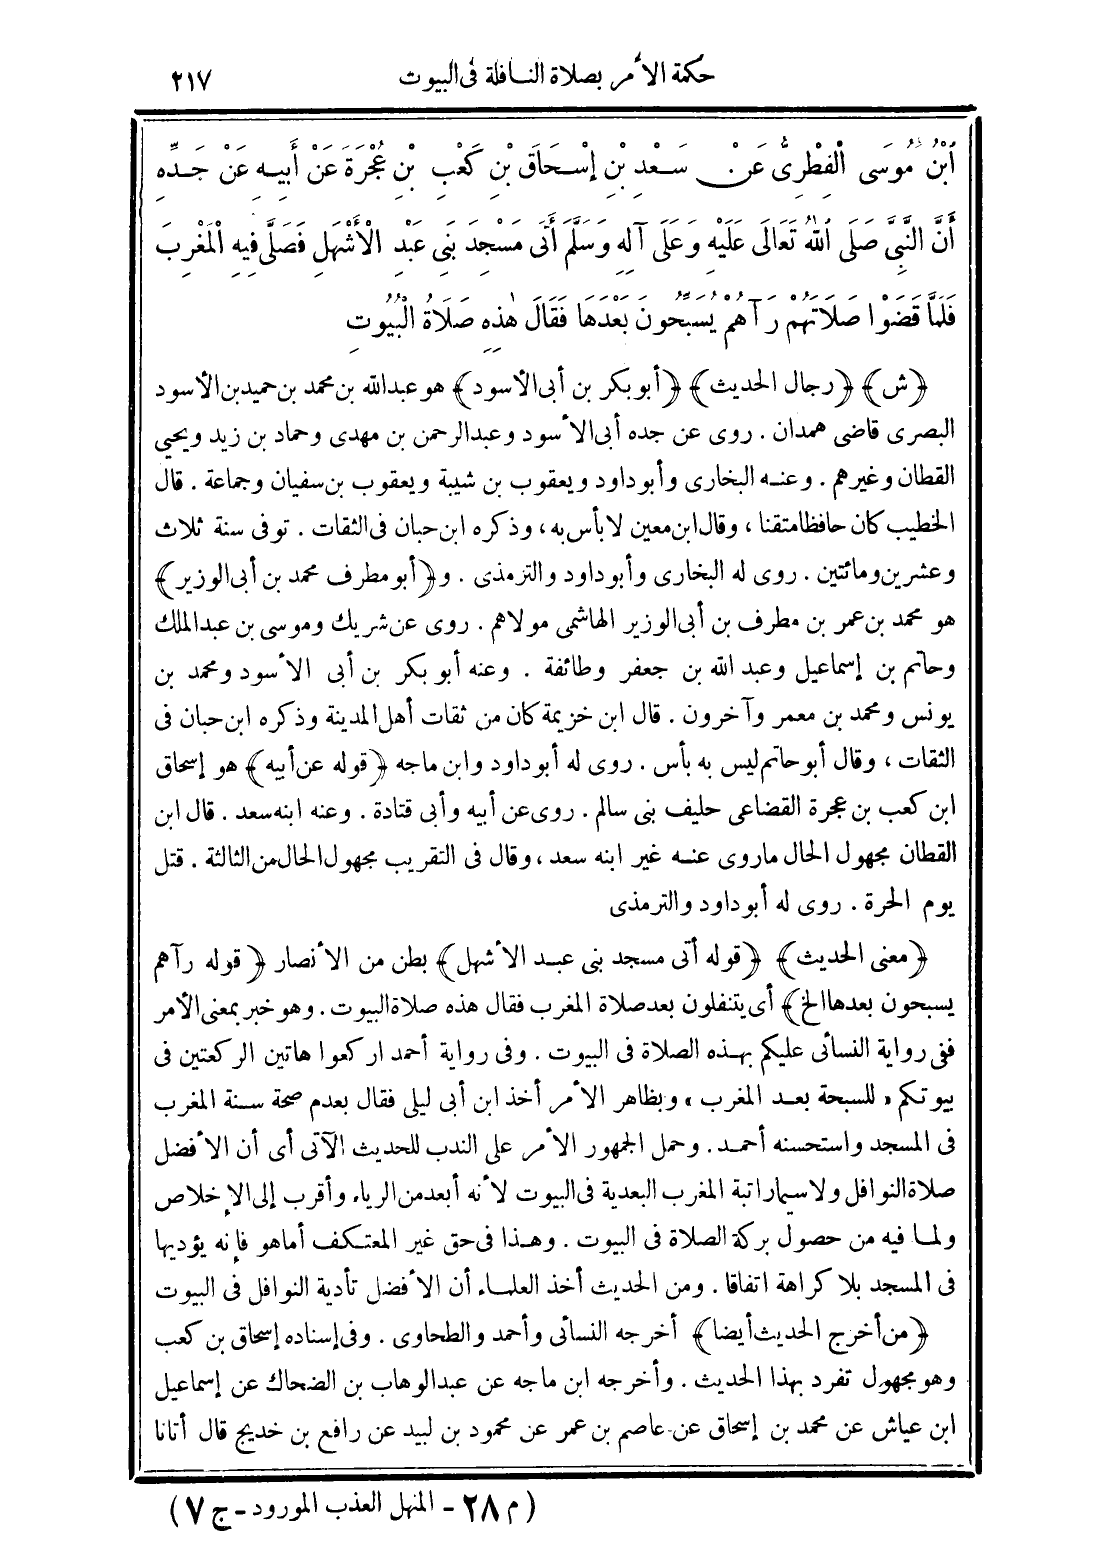 حكمة الأمر بصلاة النافلة فى البيوت ٢١٧
ٱبْنُ مُوسَى ٱلْفِطْرِىُّ عَنْ سَعْدِ بْنِ إِسْحَاقَ بْنِ كَعْبِ بْنِ عُجْرَةَ عَنْ أَبِيهِ عَنْ جَدِّهِ
أَنَّ النَّبِيَّ صَلَّى ٱللهُ تَعَالَى عَلَيْهِ وَعَلَى آلِهِ وَسَلَّمَ أَتَى مَسْجِدَ بَنِى عَبْدِ الْأَشْهَلِ فَصَلَّى فِيهِ ٱلْمَغْرِبَ
فَلَمَّا قَضَوْا صَلَاتَهُمْ رَآهُمْ يُسَبِّحُونَ بَعْدَهَا فَقَالَ هٰذِهِ صَلَاةُ الْبُيُوتِ
﴿ش﴾ ﴿رجال الحديث﴾ ﴿أبو بكر بن أبى الأسود﴾ هو عبد الله بن محمد بن حميد بن الأسود
البصرى قاضى همدان . روى عن جده أبى الأسود وعبد الرحمن بن مهدى وحماد بن زيد ويحيى
القطان وغيرهم . وعنه البخارى وأبو داود ويعقوب بن شيبة ويعقوب بن سفيان وجماعة . قال
الخطيب كان حافظا متقنا ، وقال ابن معين لا بأس به ، وذكره ابن حبان فى الثقات . توفى سنة ثلاث
وعشرين ومائتين . روى له البخارى وأبو داود والترمذى . و﴿أبو مطرف محمد بن أبى الوزير﴾
هو محمد بن عمر بن مطرف بن أبى الوزير الهاشمى مولاهم . روى عن شريك وموسى بن عبد الملك
وحاتم بن إسماعيل وعبد الله بن جعفر وطائفة . وعنه أبو بكر بن أبى الأسود ومحمد بن
يونس ومحمد بن معمر وآخرون . قال ابن خزيمة كان من ثقات أهل المدينة وذكره ابن حبان فى
الثقات ، وقال أبو حاتم ليس به بأس . روى له أبو داود وابن ماجه ﴿قوله عن أبيه﴾ هو إسحاق
ابن كعب بن عجرة القضاعى حليف بنى سالم . روى عن أبيه وأبى قتادة . وعنه ابنه سعد . قال ابن
القطان مجهول الحال ماروى عنه غير ابنه سعد ، وقال فى التقريب مجهول الحال من الثالثة . قتل
يوم الحرة . روى له أبو داود والترمذى
﴿معنى الحديث﴾ ﴿قوله أتى مسجد بنى عبد الأشهل﴾ بطن من الأنصار ﴿قوله رآهم
يسبحون بعدها الخ﴾ أى يتنفلون بعد صلاة المغرب فقال هذه صلاة البيوت . وهو خبر بمعنى الأمر
ففى رواية النسائى عليكم بهذه الصلاة فى البيوت . وفى رواية أحمد اركعوا هاتين الركعتين فى
بيوتكم «للسبحة بعد المغرب» وبظاهر الأمر أخذ ابن أبى ليلى فقال بعدم صحة سنة المغرب
فى المسجد واستحسنه أحمد . وحمل الجمهور الأمر على الندب للحديث الآتى أى أن الأفضل
صلاة النوافل ولا سيما راتبة المغرب البعدية فى البيوت لأنه أبعد من الرياء وأقرب إلى الإخلاص
ولما فيه من حصول بركة الصلاة فى البيوت . وهذا فى حق غير المعتكف أما هو فإنه يؤديها
فى المسجد بلا كراهة اتفاقا . ومن الحديث أخذ العلماء أن الأفضل تأدية النوافل فى البيوت
﴿من أخرج الحديث أيضا﴾ أخرجه النسائى وأحمد والطحاوى . وفى إسناده إسحاق بن كعب
وهو مجهول تفرد بهذا الحديث . وأخرجه ابن ماجه عن عبد الوهاب بن الضحاك عن إسماعيل
ابن عياش عن محمد بن إسحاق عن عاصم بن عمر عن محمود بن لبيد عن رافع بن خديج قال أتانا
(م ٢٨ - المنهل العذب المورود - ج ٧)